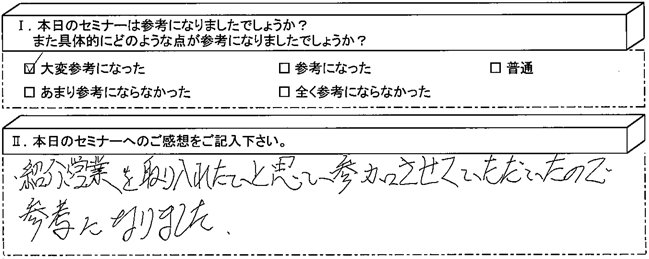 Ⅰ．本日のセミナーは参考になりましたでしょうか？
また具体的にどのような点が参考になりましたでしょうか？
☑ 大変参考になった □ 参考になった □ 普通
□ あまり参考にならなかった □ 全く参考にならなかった
Ⅱ．本日のセミナーへのご感想をご記入下さい。
・紹介営業を取り入れたいと思い、参加させていただいたので
参考になりました。